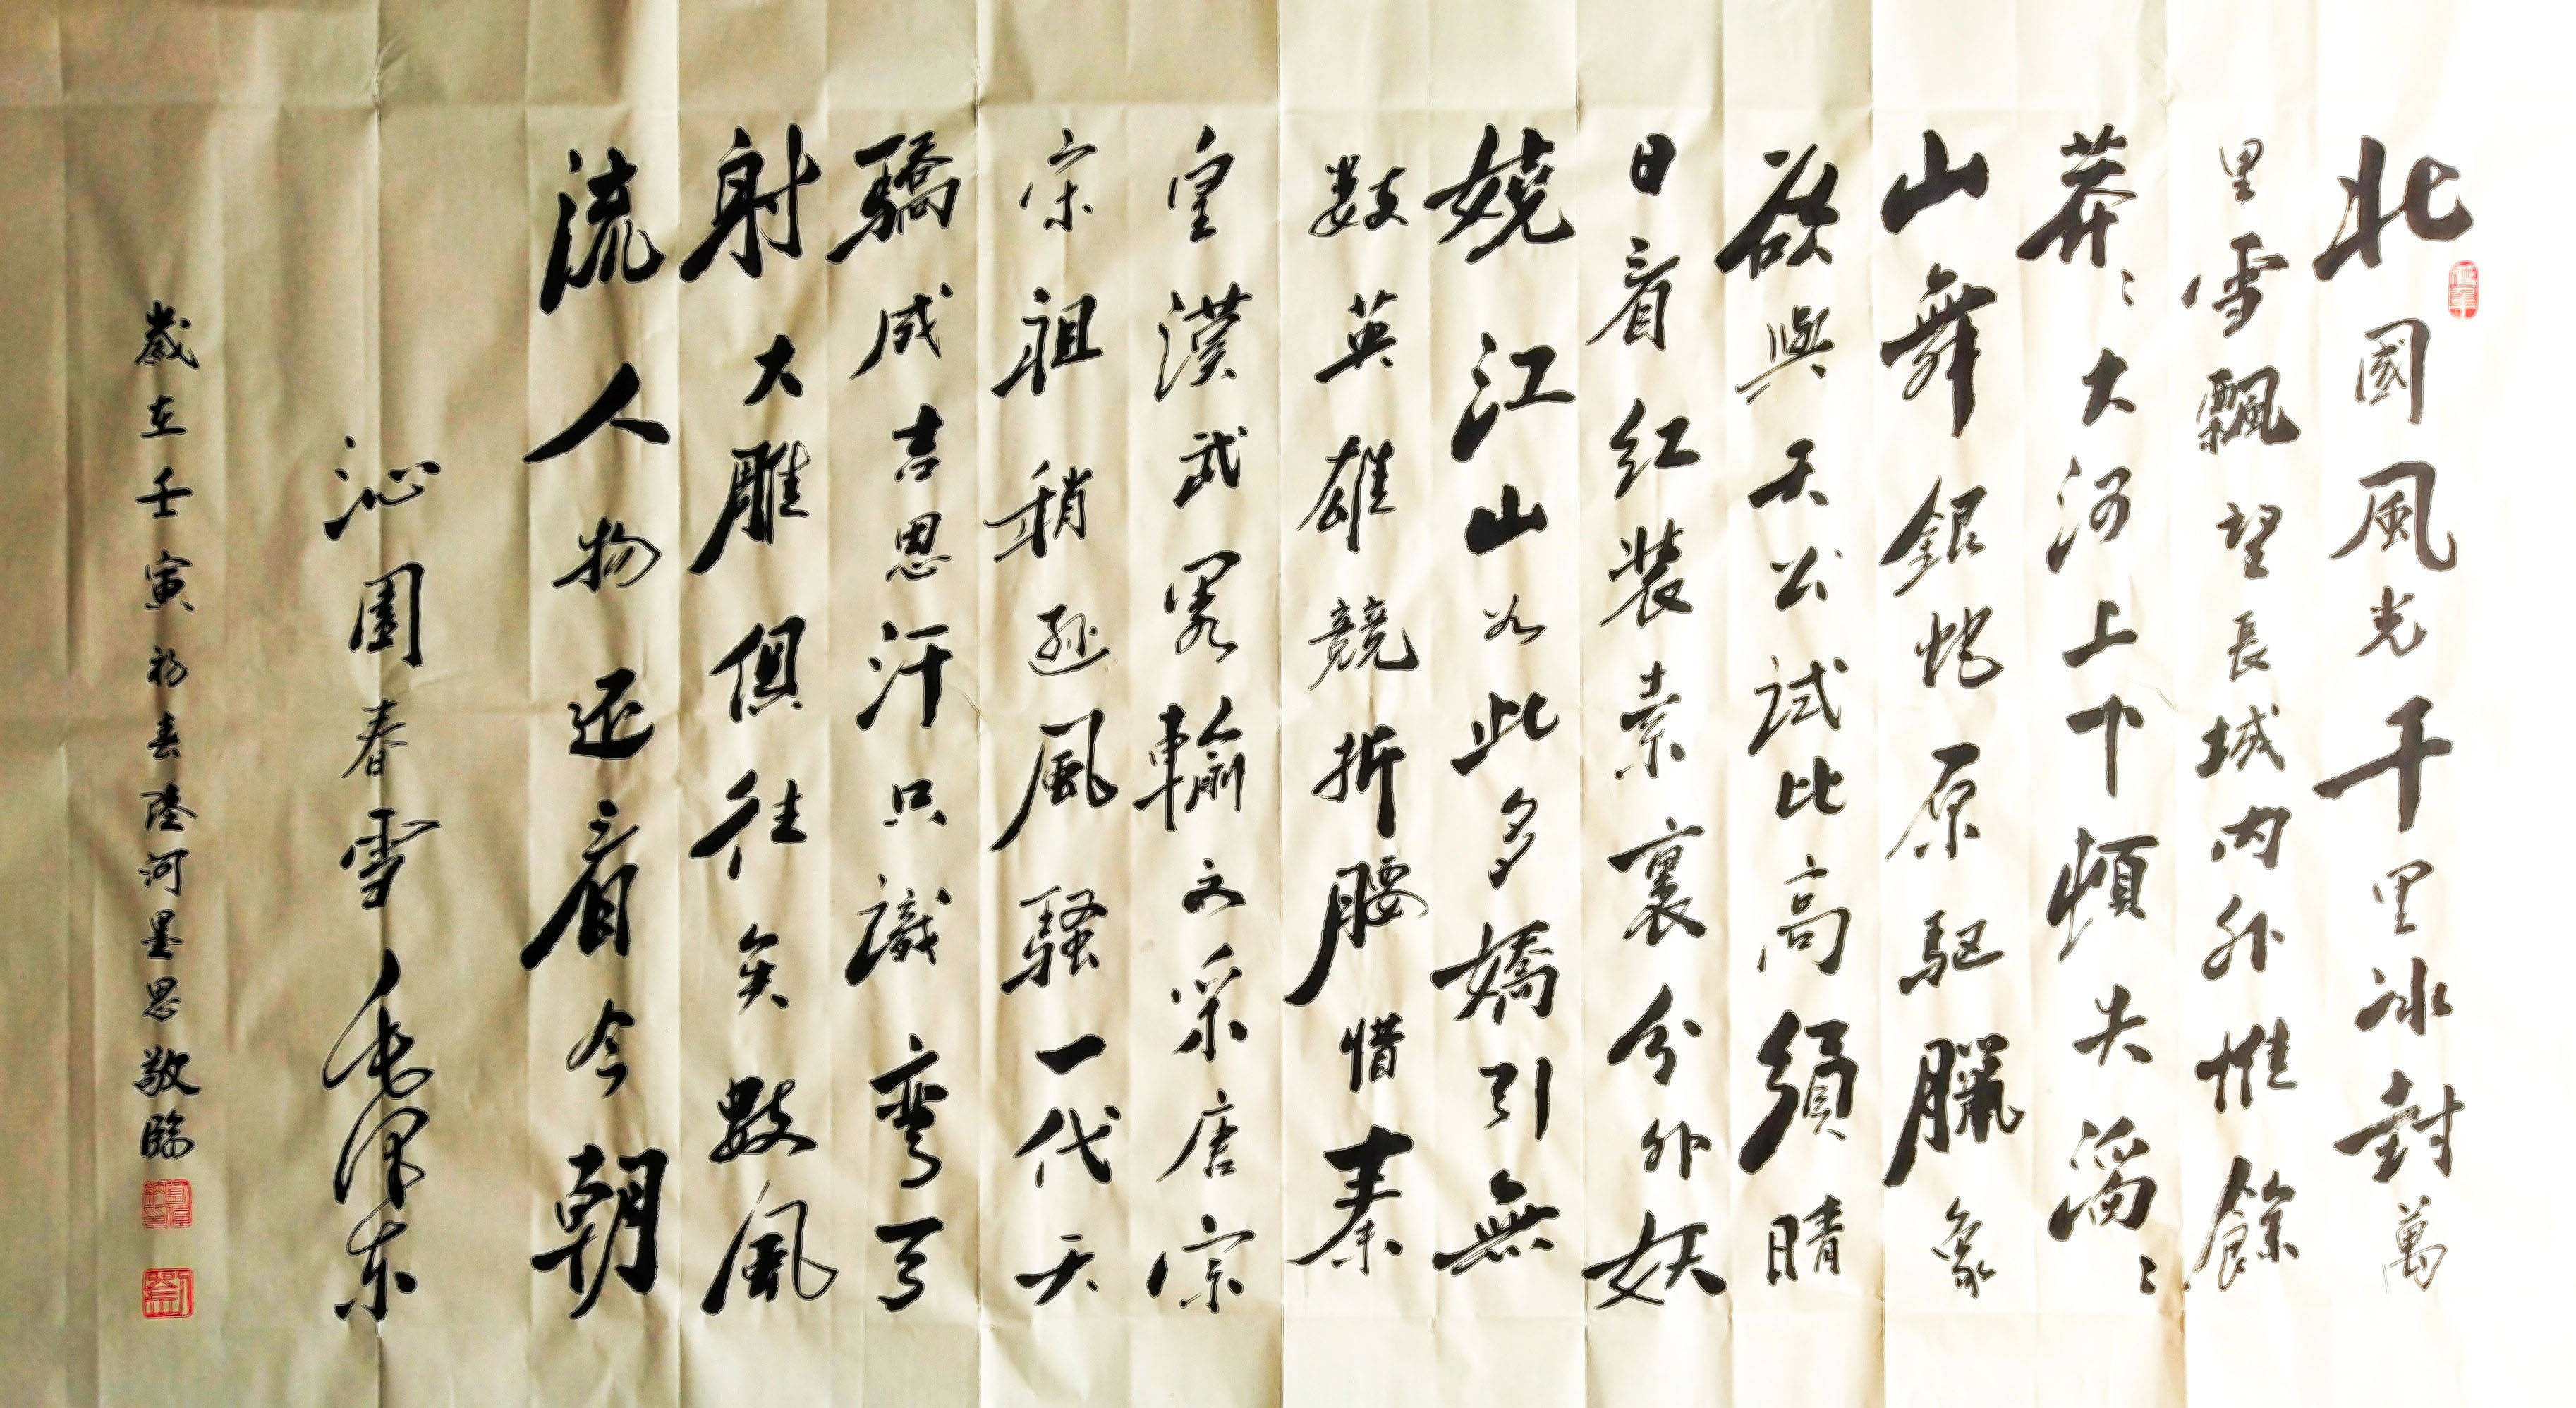 北國風光千里冰封萬
里雪飄望長城内外惟餘
莽〻大河上下頓失滔〻
山舞銀蛇原駈臘象
欲與天公試比高須晴
日看红装素裹分外妖
嬈江山如此多嬌引無
数英雄競折腰惜秦
皇漢武畧輸文采唐宗
宋祖稍遜風騷一代天
驕成吉思汗只識彎弓
射大雕俱往矣數風
流人物还看今朝
沁園春雪毛泽东
歲在壬寅初春陸河墨思敬臨